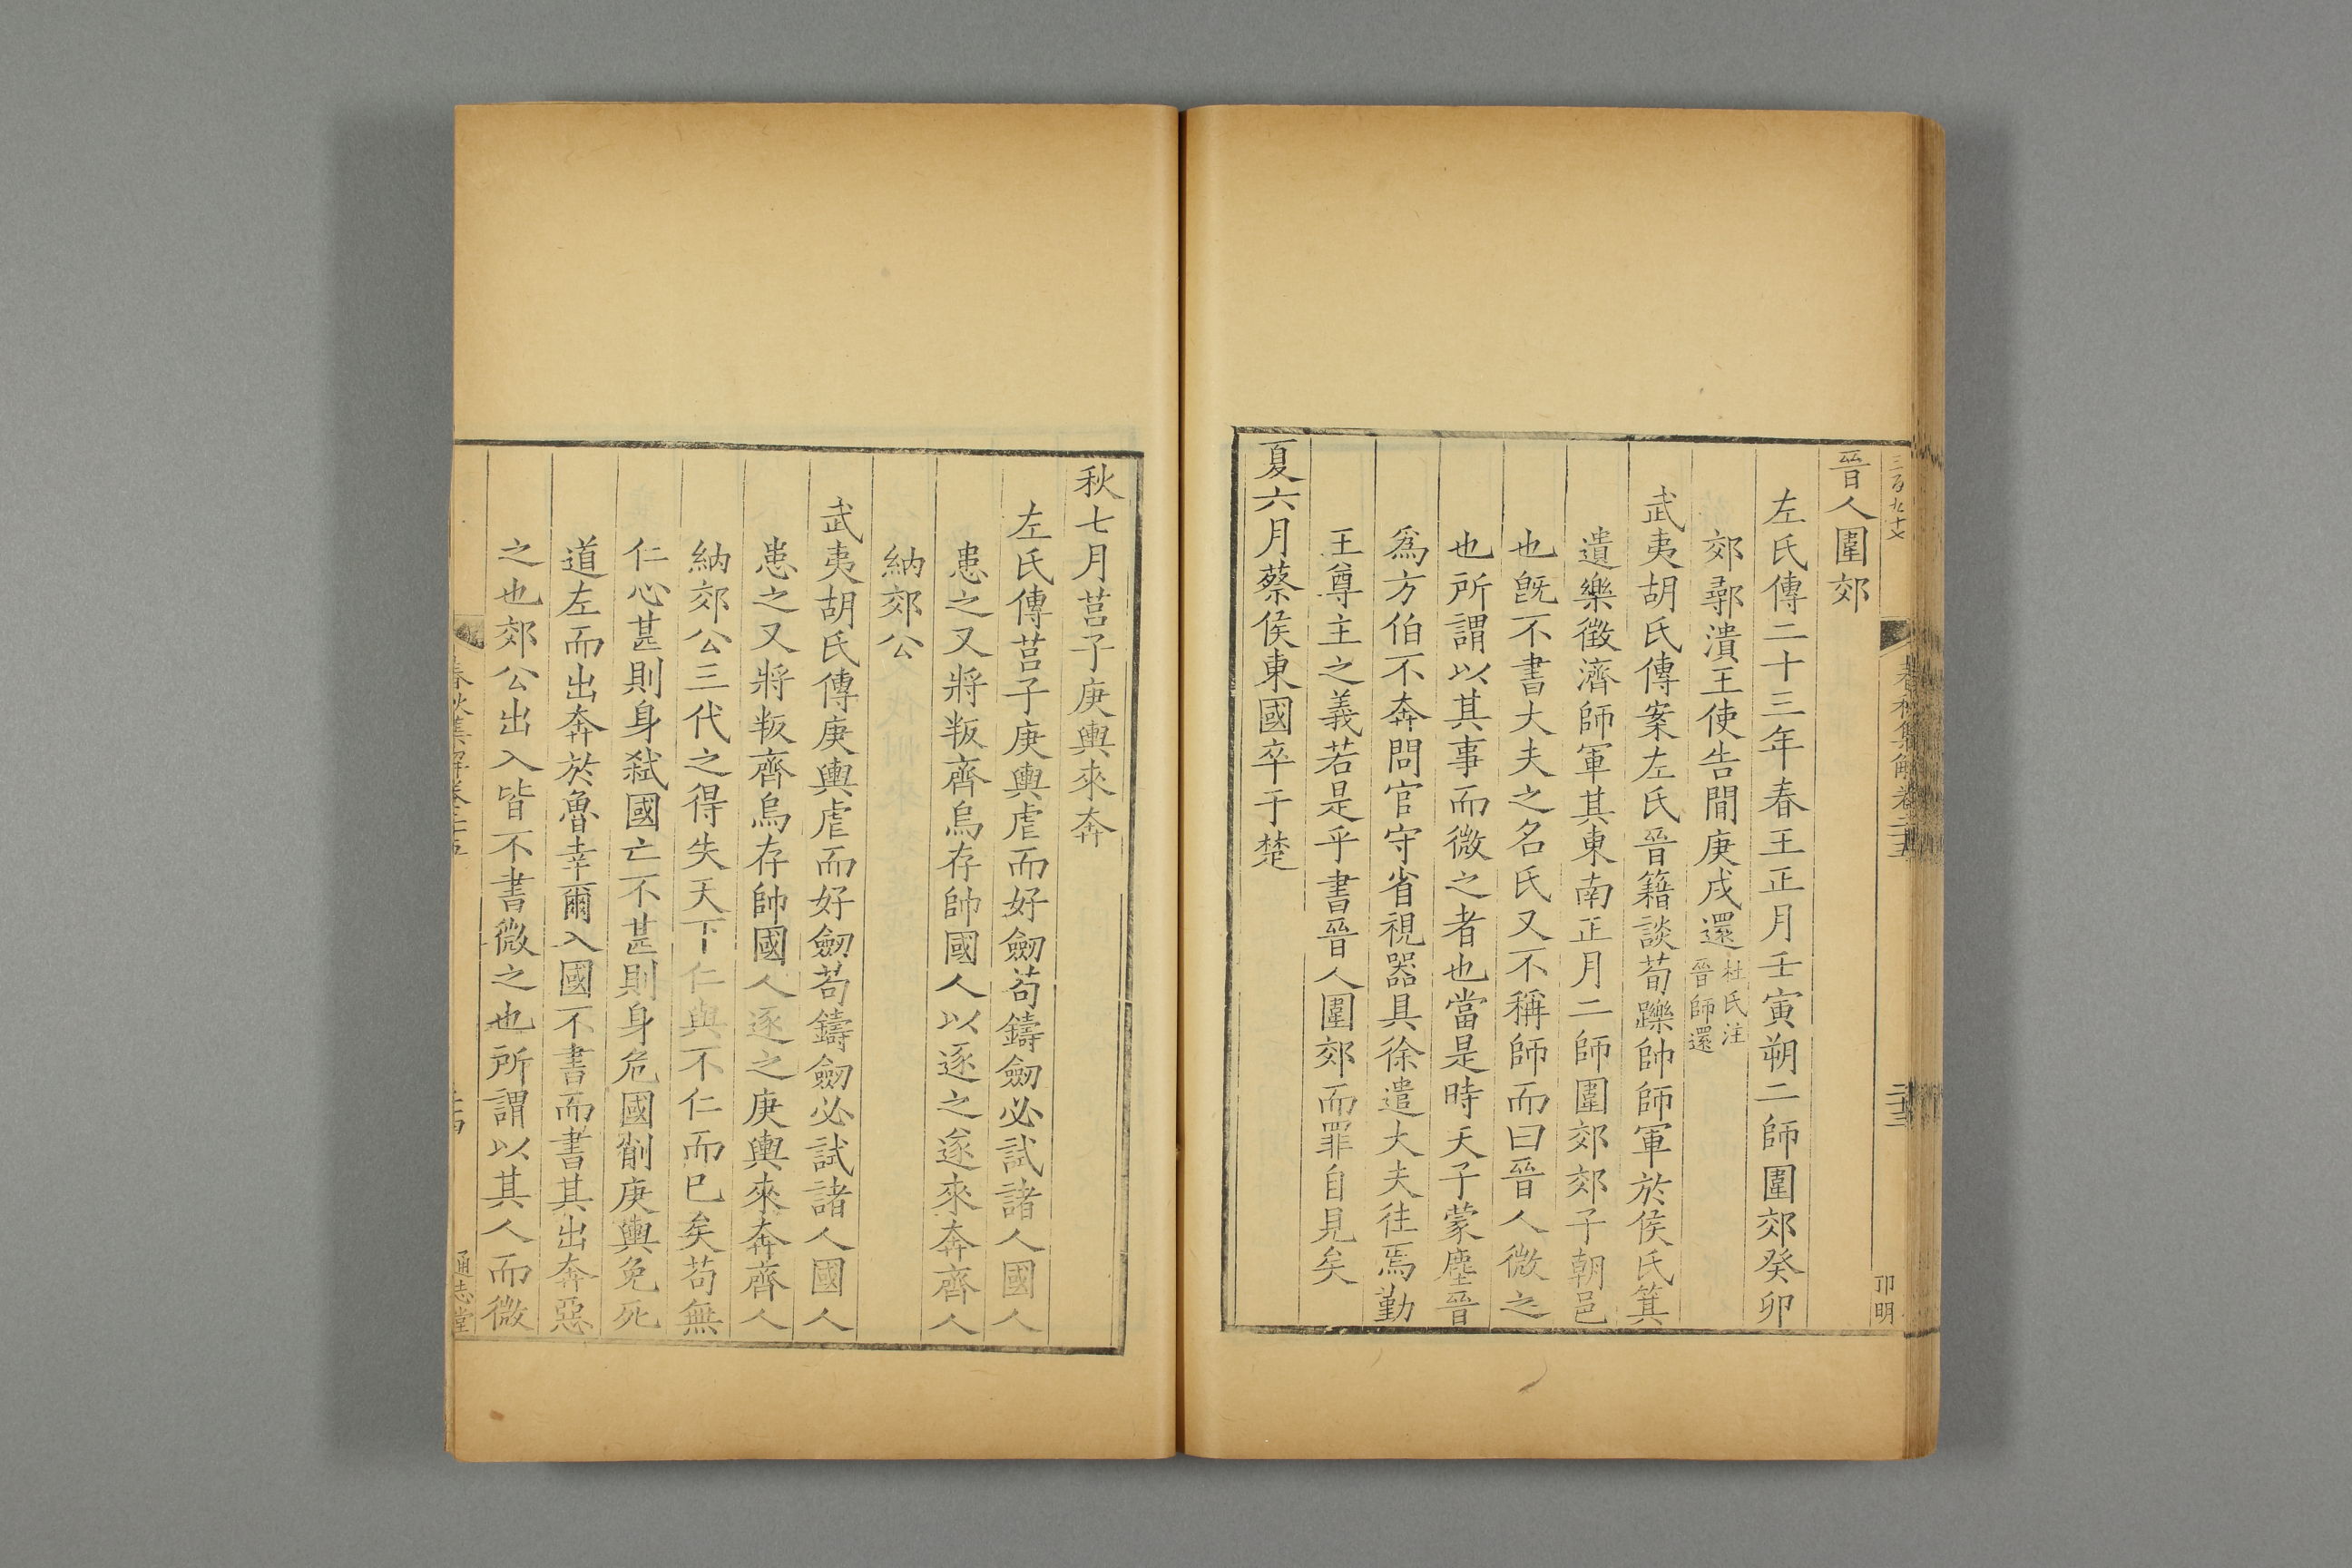 三百九十七
春秋集解卷二十五
二十三
卬明
晉人圍郊
左氏傳二十三年春王正月壬寅朔二師圍郊癸卯
郊鄩潰王使告閒庚戌還杜氏注
晉師還
武夷胡氏傳案左氏晉籍談荀躒帥師軍於侯氏箕
遺樂徵濟師軍其東南正月二師圍郊郊子朝邑
也旣不書大夫之名氏又不稱師而曰晉人微之
也所謂以其事而微之者也當是時天子蒙塵晉
爲方伯不奔問官守省視器具徐遣大夫往焉勤
王尊主之義若是乎書晉人圍郊而罪自見矣
夏六月蔡侯東國卒于楚
秋七月莒子庚輿來奔
左氏傳莒子庚輿虐而好劒苟鑄劒必試諸人國人
患之又將叛齊烏存帥國人以逐之遂來奔齊人
納郊公
武夷胡氏傳庚輿虐而好劒苟鑄劒必試諸人國人
患之又將叛齊烏存帥國人逐之庚輿來奔齊人
納郊公三代之得失天下仁與不仁而巳矣苟無
仁心甚則身弑國亡不甚則身危國削庚輿免死
道左而出奔於魯幸爾入國不書而書其出奔惡
之也郊公出入皆不書微之也所謂以其人而微
春秋集解卷二十五
通志堂